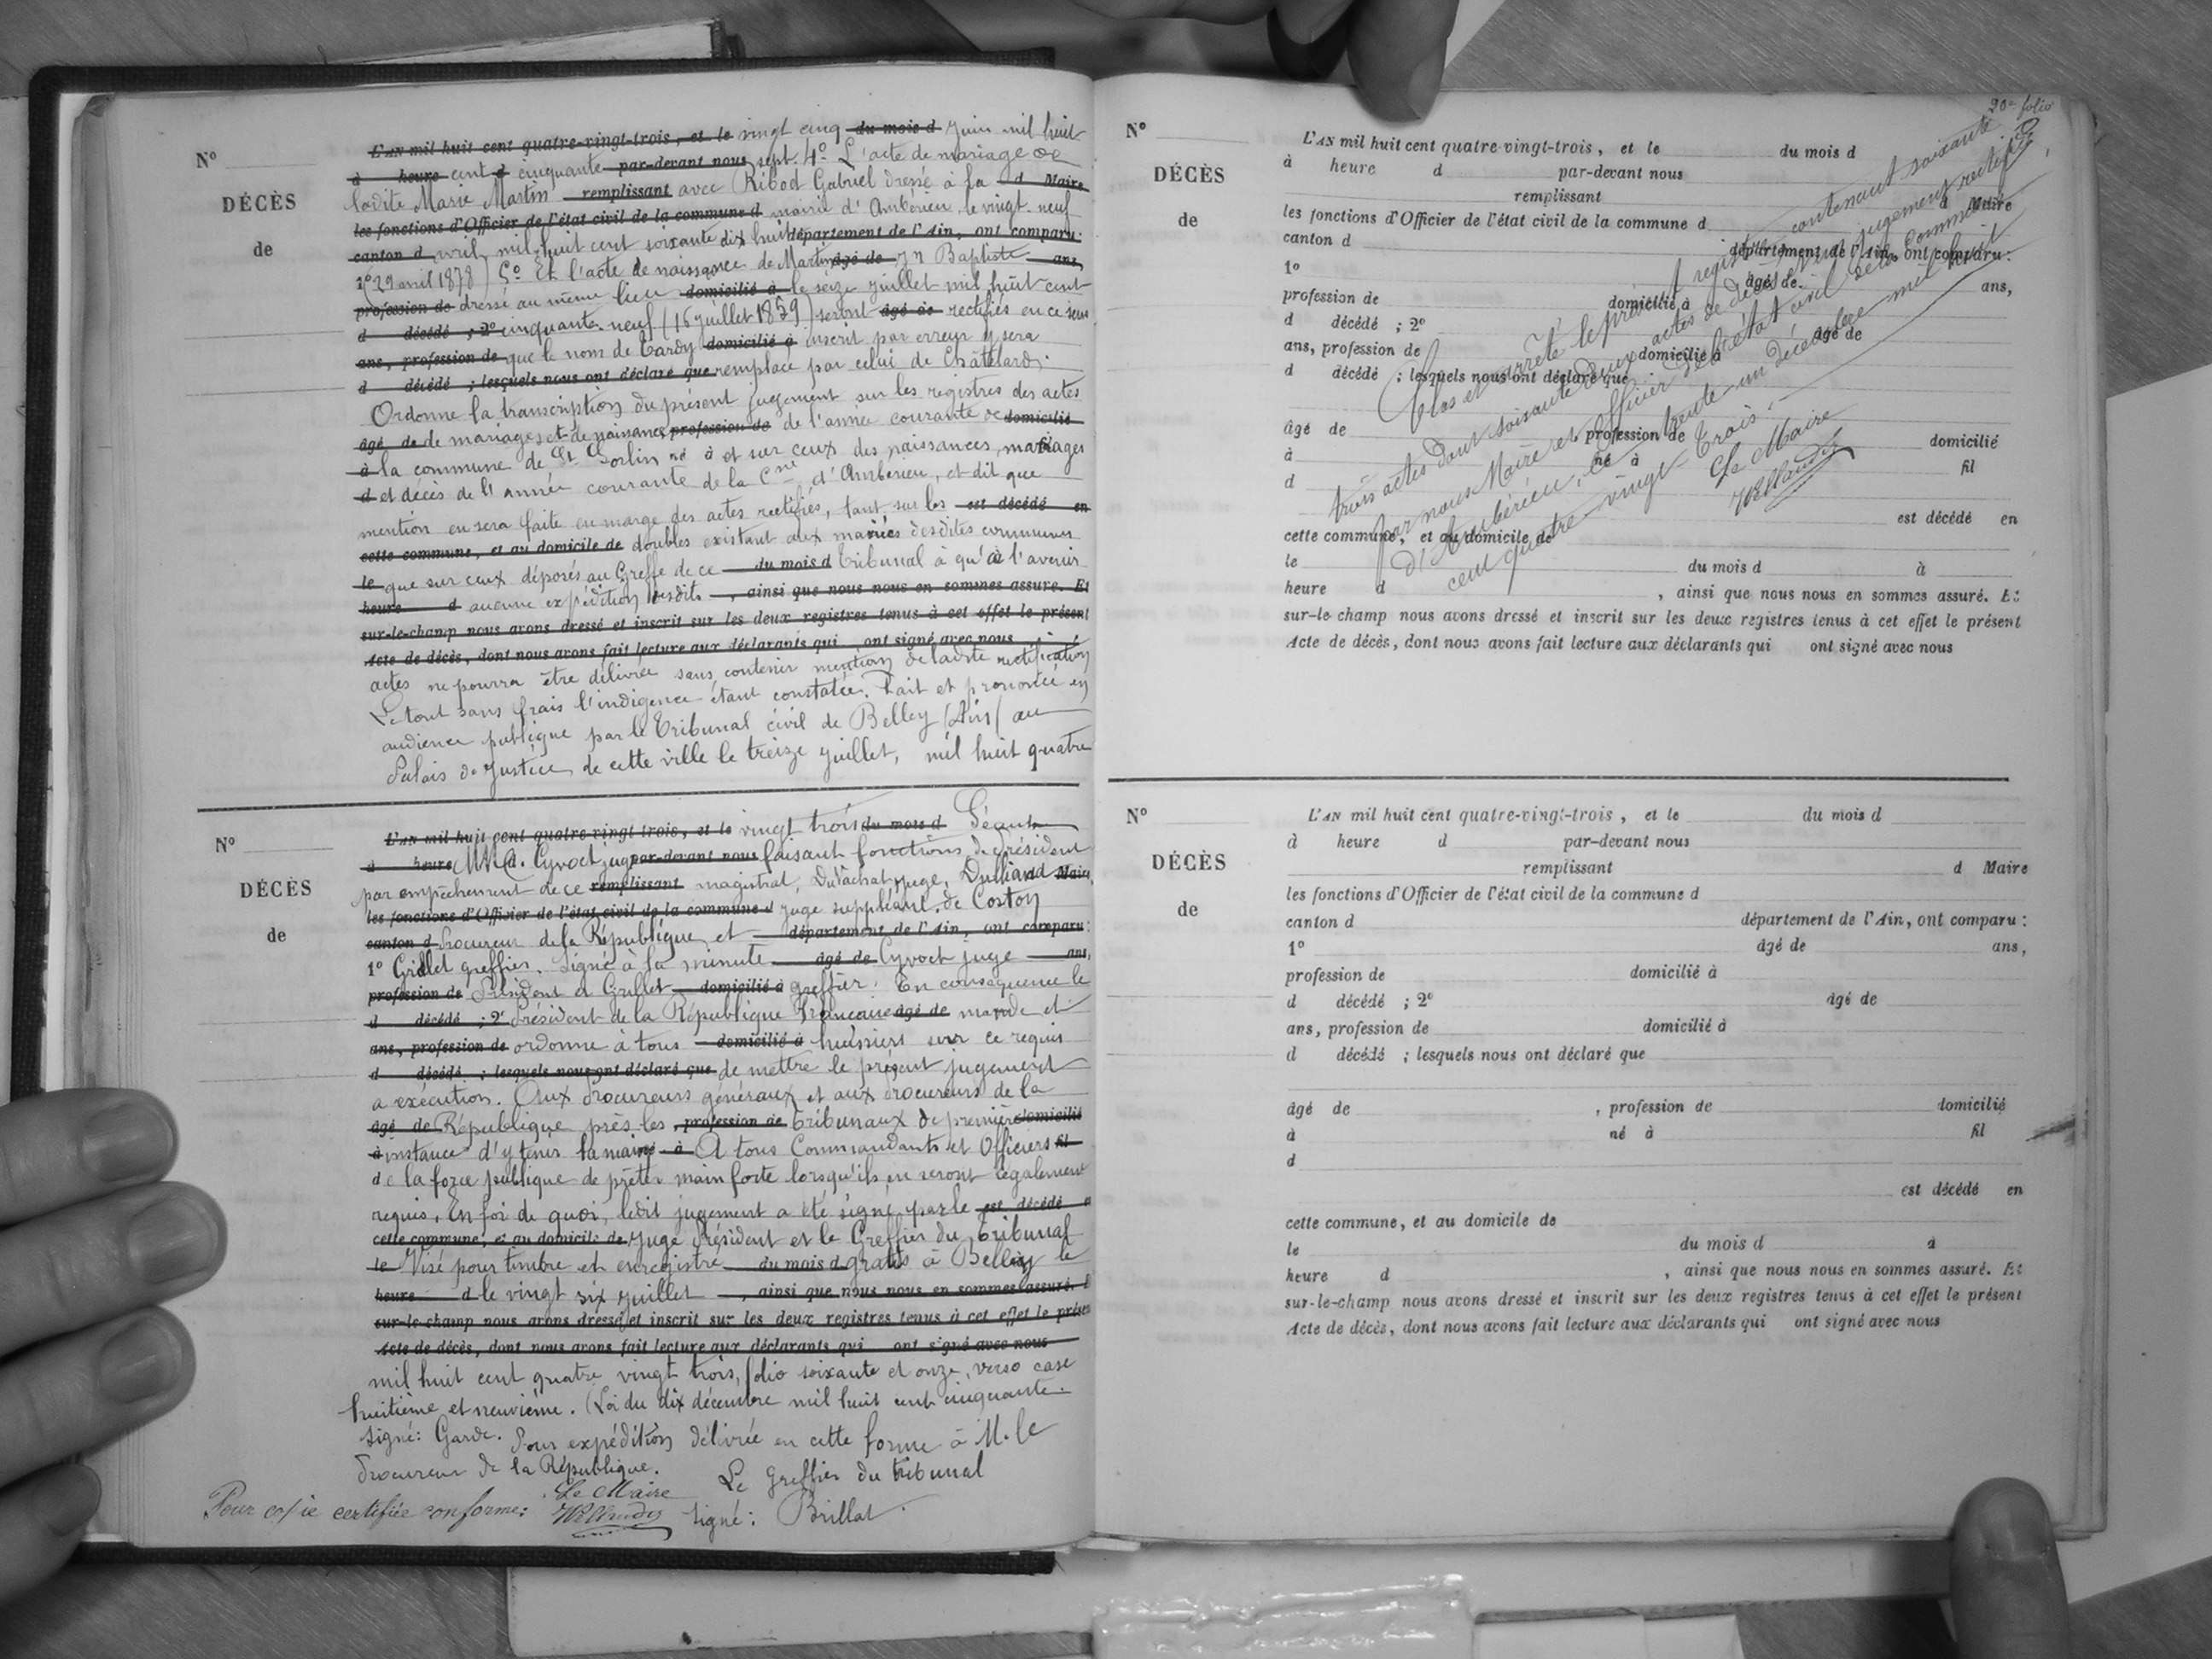 N°
DÉCÈS
de
L'AN mil huit cent quatre-vingt-trois, et le vingt cinq du mois d juin mil huit
à heure cent d cinquante par-devant nous sept. 4° L'acte de mariage de
ladite Marie Martin remplissant avec Ribod Gabriel dressé à la d Maire
les fonctions d'Officier de l'état civil de la commune d mairie d'Ambérieu le vingt-neuf
canton d avril mil huit cent soixante dix huit département de l'Ain, ont comparu:
1° 29 avril 1878) 5° Et l'acte de naissance de Martin âgé de Jn Baptiste ans,
profession de dressé au même lieu domicilié à le seize juillet mil huit cent
d décédé ; 2° cinquante-neuf (16 juillet 1859) seront âgé de rectifiés en ce sens
ans, profession de que le nom de Tardy domicilié à inscrit par erreur y sera
d décédé ; lesquels nous ont déclaré que remplacé par celui de Châtelard.
Ordonne la transcription du présent jugement sur les registres des actes
âgé de de mariages et de naissances profession de de l'année courante de domicilié
à la commune de St Sorlin né à et sur ceux des naissances, mariages
d et décès de l'année courante de la Cne d'Ambérieu, et dit que
mention en sera faite en marge des actes rectifiés, tant sur les est décédé en
cette commune, et au domicile de doubles existant aux mairies desdites communes
le que sur ceux déposés au Greffe de ce du mois d tribunal à qu'à l'avenir
heure d aucune expédition desdits , ainsi que nous nous en sommes assuré. Et
sur-le-champ nous avons dressé et inscrit sur les deux registres tenus à cet effet le présent
Acte de décès, dont nous avons fait lecture aux déclarants qui ont signé avec nous
actes ne pourra être délivrée sans contenir mention de ladite rectification
Le tout sans frais l'indigence étant constatée. Fait et prononcé en
audience publique par le Tribunal civil de Belley (Ain) au
Palais de Justice de cette ville le treize juillet, mil huit quatre
N°
DÉCÈS
de
L'AN mil huit cent quatre-vingt-trois, et le vingt trois du mois d Séant
à heure MM. Cyvoct juge par-devant nous faisant fonctions de Président
par empêchement de ce remplissant magistrat, Duvachat juge, Dulliand Maire
les fonctions d'Officier de l'état civil de la commune d juge suppléant, de Coston
canton d Procureur de la République, et département de l'Ain, ont comparu:
1° Grillet greffier. Signé à la minute âgé de Cyvoct juge ans,
profession de Président et Grillet domicilié à greffier. En conséquence le
d décédé ; 2° Président de la République Française âgé de mande et
ans, profession de ordonne à tous domicilié à huissiers sur ce requis
d décédé ; lesquels nous ont déclaré que de mettre le présent jugement
a exécution. Aux Procureurs généraux et aux Procureurs de la
âgé de République près les profession de tribunaux de première domicilié
à instance d'y tenir la main né à A tous Commandants et Officiers fil
de la force publique de prêter main forte lorsqu'ils en seront légalement
requis, En foi de quoi, ledit jugement a été signé par le est décédé en
cette commune, et au domicile de Juge Président et le Greffier du Tribunal
le Visé pour timbre et enregistré du mois d gratis à Belley le
heure d le vingt six juillet , ainsi que nous nous en sommes assuré. E
sur-le-champ nous avons dressé et inscrit sur les deux registres tenus à cet effet le présen
Acte de décès, dont nous avons fait lecture aux déclarants qui ont signé avec nous
mil huit cent quatre vingt trois, folio soixante et onze, verso case
huitième et neuvième. (Loi du dix décembre mil huit cent cinquante.
Signé: Garde. Pour expédition délivrée en cette forme à M. le
Procureur de la République. Le Greffier du tribunal
Pour copie certifiée conforme: Le Maire signé: Brillat.
20e folio
N°
DÉCÈS
de
L'AN mil huit cent quatre-vingt-trois, et le du mois d
à heure d par-devant nous
remplissant
d Maire
les fonctions d'Officier de l'état civil de la commune d
canton d département de l'Ain, ont comparu:
1° âgé de
profession de domicilié à ans,
d décédé ; 2° âgé de
ans, profession de domicilié à
d décédé ; lesquels nous ont déclaré que
âgé de , profession de domicilié
à né à fil
d
est décédé en
cette commune, et au domicile de
le du mois d à
heure d , ainsi que nous nous en sommes assuré. Et
sur-le-champ nous avons dressé et inscrit sur les deux registres tenus à cet effet le présent
Acte de décès, dont nous avons fait lecture aux déclarants qui ont signé avec nous
Clos et arrêté le présent registre contenant soixante
trois actes dont soixante deux actes de décès et un jugement rectifié
par nous Maire et Officier de l'état civil de la commune
d'Ambérieu, ce trente-un décembre mil huit
cent quatre-vingt-trois.
Le Maire
N°
DÉCÈS
de
L'AN mil huit cent quatre-vingt-trois, et le du mois d
à heure d par-devant nous
remplissant d Maire
les fonctions d'Officier de l'état civil de la commune d
canton d département de l'Ain, ont comparu:
1° âgé de ans,
profession de domicilié à
d décédé ; 2° âgé de
ans, profession de domicilié à
d décédé ; lesquels nous ont déclaré que
âgé de , profession de domicilié
à né à fil
d
est décédé en
cette commune, et au domicile de
le du mois d à
heure d , ainsi que nous nous en sommes assuré. Et
sur-le-champ nous avons dressé et inscrit sur les deux registres tenus à cet effet le présent
Acte de décès, dont nous avons fait lecture aux déclarants qui ont signé avec nous